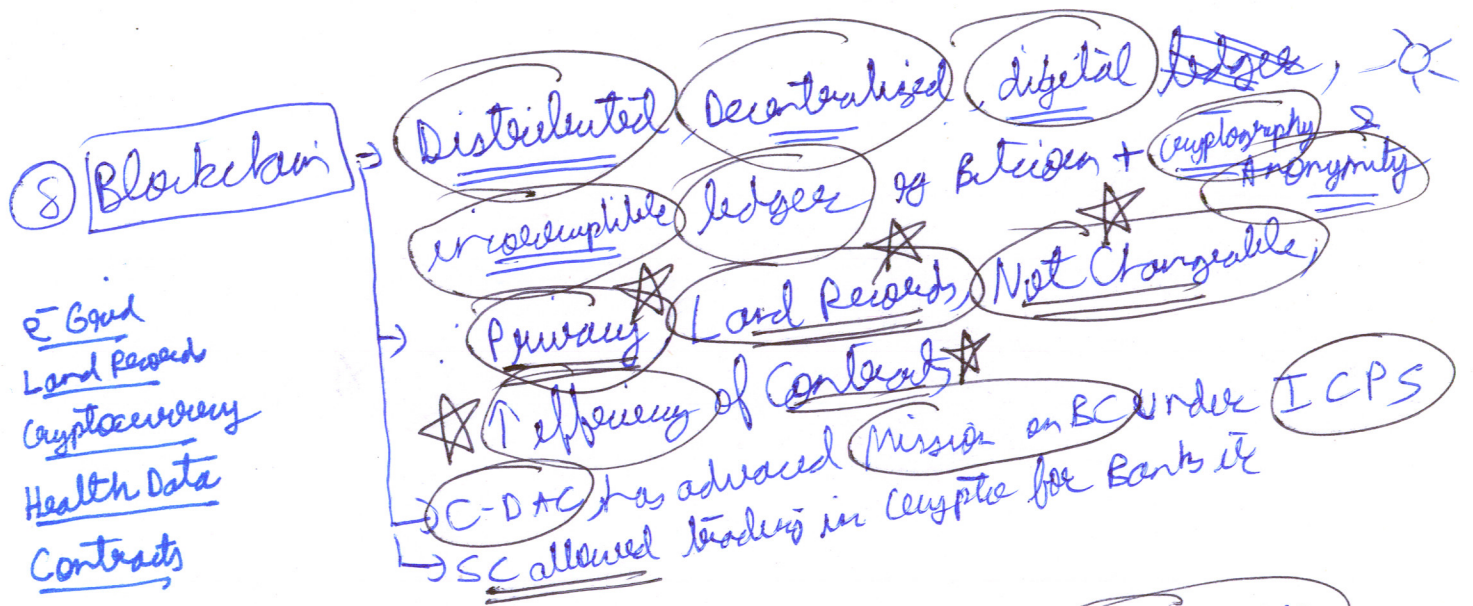 ⑧ Blockchain → Distributed Decentralized digital ledger,
incorruptible ledger eg Bitcoin + Cryptography &
Anonymity
→ Privacy, Land Records, Not Changeable,
↑ efficiency of Contracts
→ C-DAC has advaced Mission on BC under ICPS
→ SC allowed trading in Crypto for Banks
e-Grid
Land Record
Cryptocurrency
Health Data
Contracts